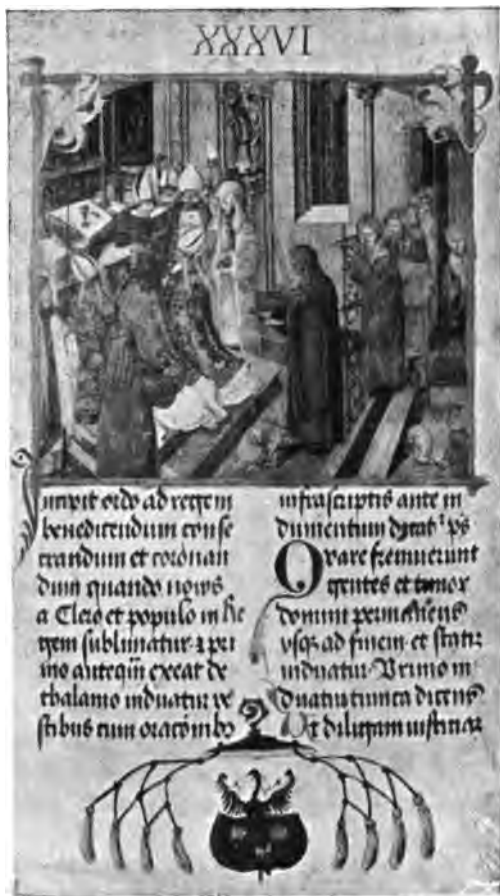 XXXVI
Incipit ordo ad regem
benedicendum conse
crandum et coronan
dum quando novus
a Clero et populo in Re
gem sublimatur· ⁊ pri
mo anteqm̄ exeat de
thalamo induatur ve
stibus cum oracōnibꝰ
infrascriptis ante in
dumentum ps
Quare fremuerunt
gentes et timor
domini permanens
vsqꝫ ad finem· et statī
induatur· Primo in
duatur tunica dicens
Ut diligam